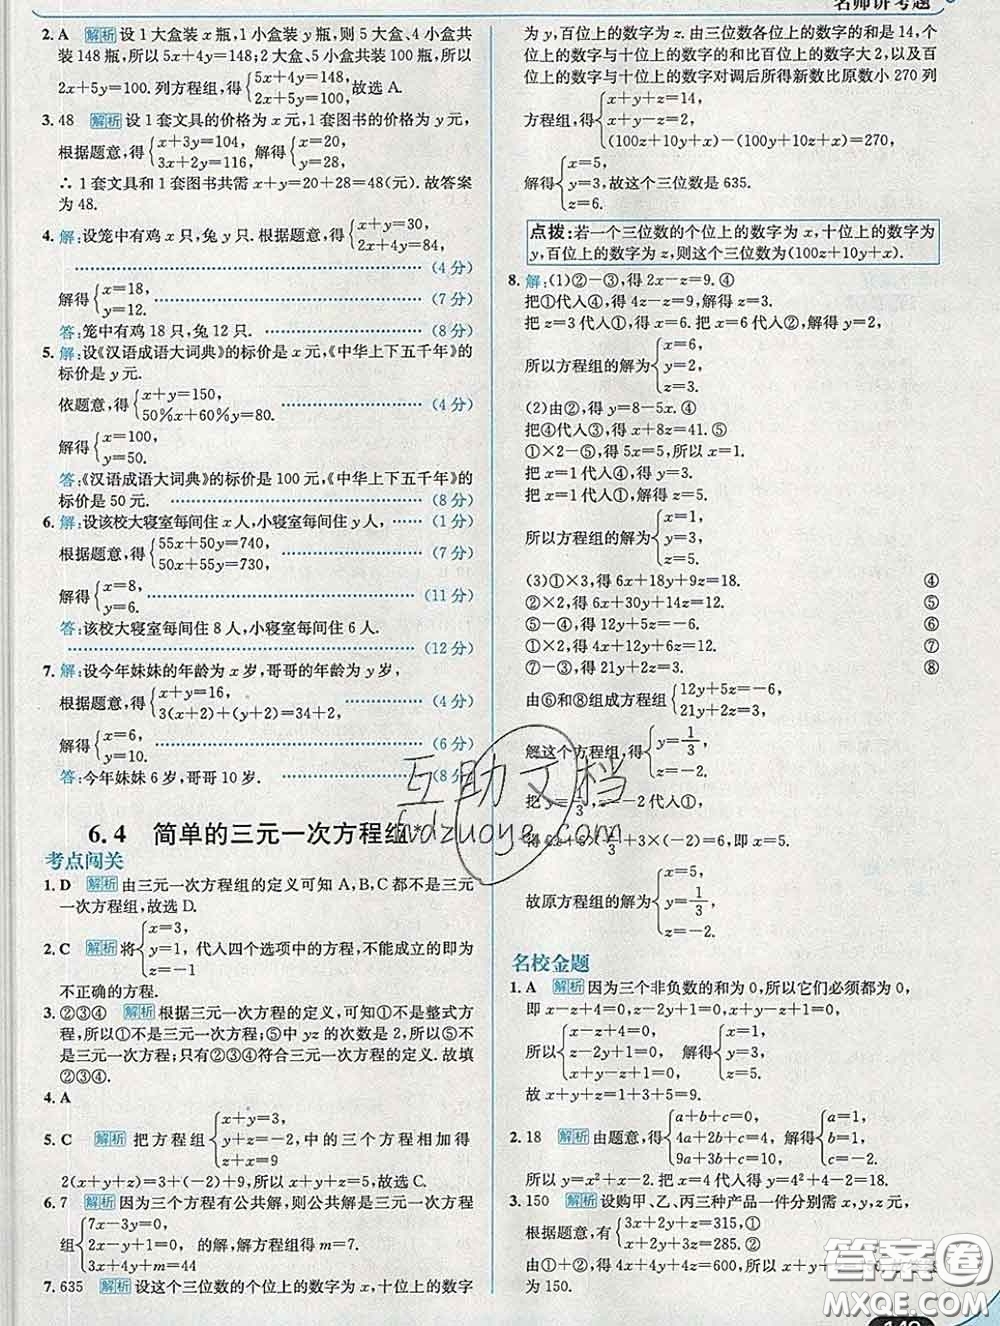 名师讲考题
2. A 解析 设1大盒装x瓶,1小盒装y瓶,则5大盒、4小盒共
装148瓶,所以5x+4y=148;2大盒、5小盒共装100瓶,所以
2x+5y=100.列方程组,得{5x+4y=148,
2x+5y=100,故选A.
3. 48 解析 设1套文具的价格为x元,1套图书的价格为y元,
根据题意,得{x+3y=104, 解得{x=20,
3x+2y=116, y=28,
∴1套文具和1套图书共需x+y=20+28=48(元).故答案
为48.
4. 解:设笼中有鸡x只,兔y只.根据题意,得{x+y=30,
2x+4y=84,
(4分)
解得{x=18, (7分)
y=12.
答:笼中有鸡18只,兔12只. (8分)
5. 解:设《汉语成语大词典》的标价是x元,《中华上下五千年》的
标价是y元.
依题意,得{x+y=150, (4分)
50%x+60%y=80.
解得{x=100,
y=50.
答:《汉语成语大词典》的标价是100元,《中华上下五千年》的
标价是50元. (8分)
6. 解:设该校大寝室每间住x人,小寝室每间住y人, (1分)
根据题意,得{55x+50y=740, (7分)
50x+55y=730,
解得{x=8, (11分)
y=6.
答:该校大寝室每间住8人,小寝室每间住6人.
(12分)
7. 解:设今年妹妹的年龄为x岁,哥哥的年龄为y岁,
根据题意,得{x+y=16, (4分)
3(x+2)+(y+2)=34+2,
解得{x=6, (6分)
y=10.
答:今年妹妹6岁,哥哥10岁. (8分)
6.4 简单的三元一次方程组*
考点闯关
1. D 解析 由三元一次方程组的定义可知A,B,C都不是三元
一次方程组,故选D.
2. C 解析 将{x=3,
y=1, 代入四个选项中的方程,不能成立的即为
z=-1
不正确的方程.
3. ②③④ 解析 根据三元一次方程的定义,可知①不是整式方
程,所以①不是三元一次方程;⑤中yz的次数是2,所以⑤不
是三元一次方程;只有②③④符合三元一次方程的定义.故填
②③④.
4. A
5. C 解析 把方程组{x+y=3,
y+z=-2, 中的三个方程相加得
z+x=9
2(x+y+z)=3+(-2)+9,所以x+y+z=5,故选C.
6. 7 解析 因为三个方程有公共解,则公共解是三元一次方程
组{7x-3y=0,
2x-y+1=0, 的解,解方程组得m=7.
4x+3y+m=44
7. 635 解析 设这个三位数的个位上的数字为x,十位上的数字
为y,百位上的数字为z.由三位数各位上的数字的和是14,个
位上的数字与十位上的数字的和比百位上的数字大2,以及百
位上的数字与十位上的数字对调后所得新数比原数小270列
方程组,得{x+y+z=14,
x+y-z=2,
(100z+10y+x)-(100y+10z+x)=270,
解得{x=5,
y=3,故这个三位数是635.
z=6.
点拨:若一个三位数的个位上的数字为x,十位上的数字为
y,百位上的数字为z,则这个三位数为(100z+10y+x).
8. 解:(1)②-③,得2x-z=9.④
把①代入④,得4z-z=9,解得z=3.
把z=3代入①,得x=6.把x=6代入②,得y=2,
所以方程组的解为{x=6,
y=2,
z=3.
(2)由②,得y=8-5x.④
把④代入③,得x+8z=41.⑤
①×2-⑤,得5x=5,所以x=1.
把x=1代入④,得y=3.
把x=1代入①,解得z=5.
所以方程组的解为{x=1,
y=3,
z=5.
(3)①×3,得6x+18y+9z=18. ④
②×2,得6x+30y+14z=12. ⑤
⑤-④,得12y+5z=-6. ⑥
②×2,得4x+12y+6z=12. ⑦
⑦-③,得21y+2z=3. ⑧
由⑥和⑧组成方程组{12y+5z=-6,
21y+2z=3.
解这个方程组,得{y=1/3,
z=-2.
得6x+6×(1/3)+3×(-2)=6,即x=5.
故原方程组的解为{x=5,
y=1/3,
z=-2.
名校金题
1. A 解析 因为三个非负数的和为0,所以它们必须都为0,
即x-z+4=0,z-2y+1=0,x+y-z+1=0,
所以{x-z+4=0, 解得{x=1,
z-2y+1=0, y=3,
x+y-z+1=0, z=5.
故x+y+z=1+3+5=9.
2. 18 解析 由题意,得{a+b+c=0, 解得{a=1,
4a+2b+c=4, b=1,
9a+3b+c=10, c=-2.
所以y=x²+x-2.把x=4代入,得y=4²+4-2=18.
3. 150 解析 设购甲、乙、丙三种产品一件分别需x,y,z元,
根据题意,有{3x+2y+z=315,①
x+2y+3z=285,②
由①+②,得4x+4y+4z=600,所以x+y+
为150.
互助文档
hdzuoye.com
答案圈
MXQE.COM